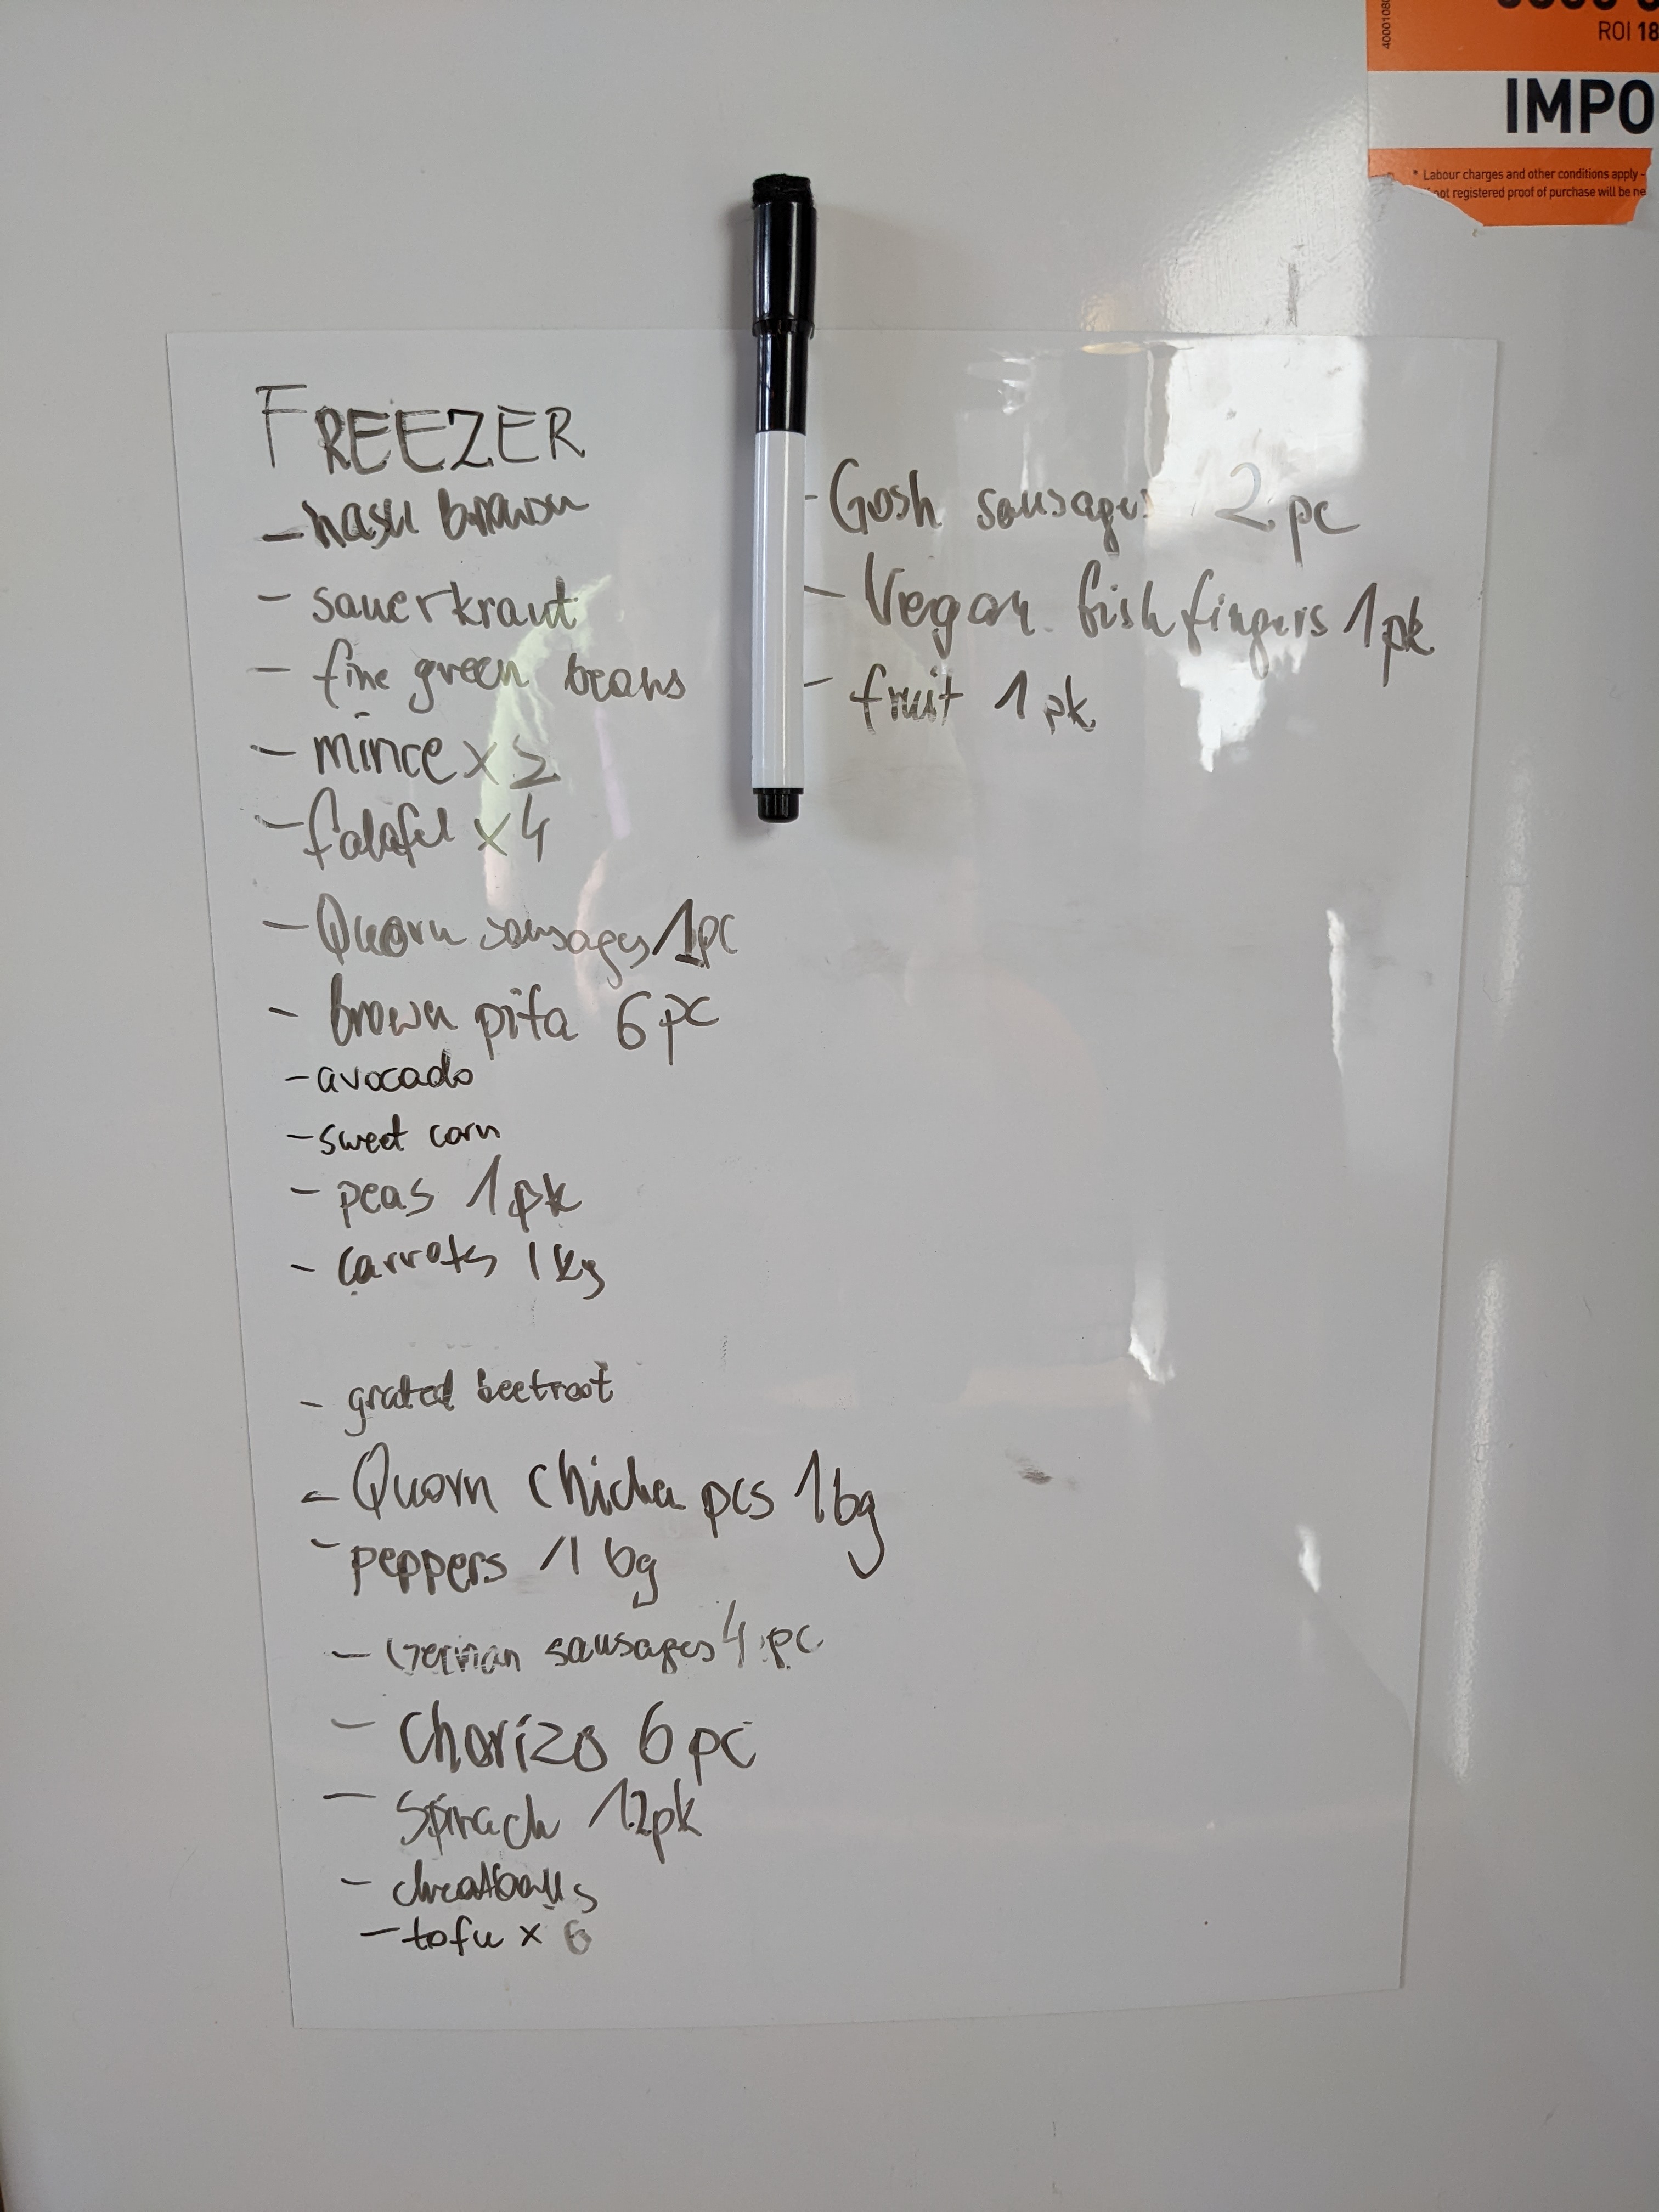 40001080
ROI 18
IMPO
* Labour charges and other conditions apply -
not registered proof of purchase will be ne
FREEZER
- hash brown
- sauerkraut
- fine green beans
- mince x 2
- falafel x 4
- Quorn sausages 1pc
- brown pita 6 pc
- avocado
- sweet corn
- peas 1 pk
- carrots 1 kg
- grated beetroot
- Quorn chicken pcs 1 bg
- peppers 1 bg
- German sausages 4 pc
- Chorizo 6 pc
- Spinach 12pk
- cheatballs
- tofu x 6
- Gosh sausages 2 pc
- Vegan fish fingers 1 pk
- fruit 1 pk